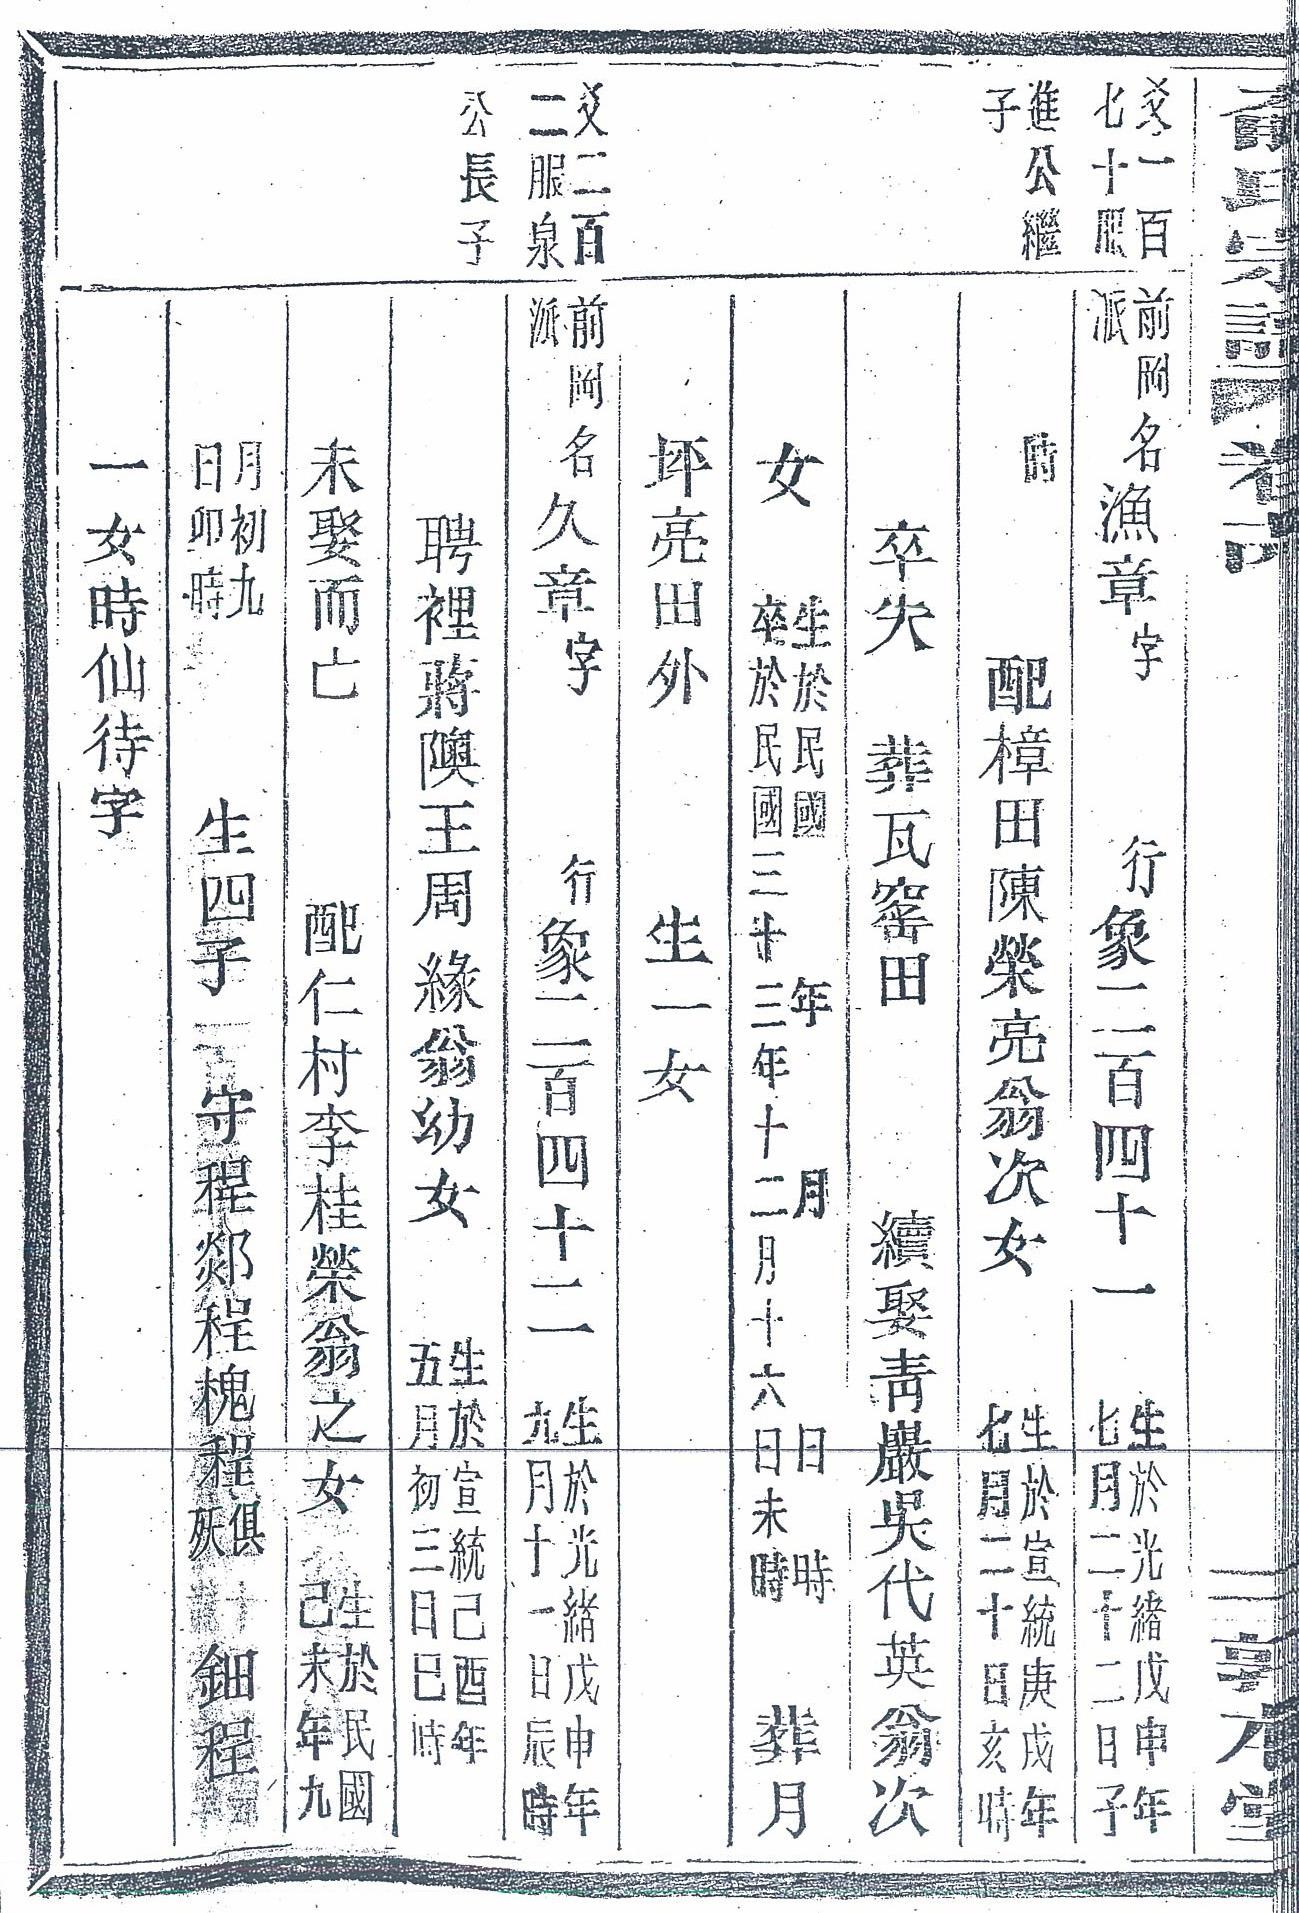 宗譜 卷六
敦本堂
文一百
七十服
進公繼
子
前岡
派
名漁章字 行象二百四十一
生於光緒戊申年
七月二十二日子
時 配樟田陳榮亮翁次女
生於宣統庚戌年
七月二十日亥時
卒失 葬瓦窰田 續娶靑嚴吳代英翁次
女
生於民國 年 月 日 時
卒於民國三十三年十二月十六日未時
葬月
坪亮田外 生一女
文二百
二服泉
公長子
前岡
派
名久章字 行象二百四十二
生於光緒戊申年
九月十一日辰時
聘裡蔣隩王周緣翁幼女
生於宣統己酉年
五月初三日巳時
未娶而亡 配仁村李桂榮翁之女
生於民國
己未年九
月初九
日卯時
生四子 守程 郯程 槐程
俱
殀
鈿程
一女時仙待字